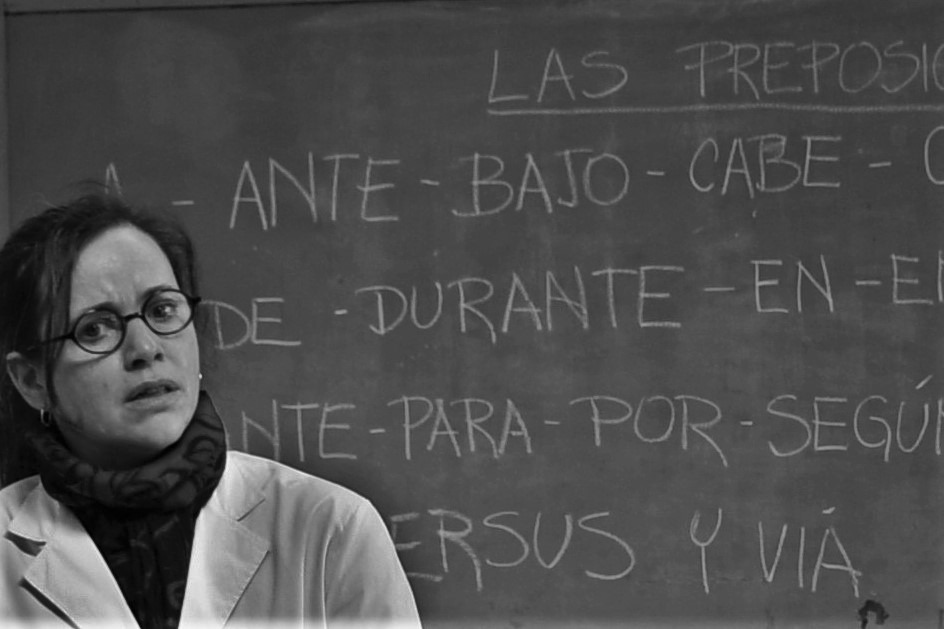 LAS PREPOSIC
A - ANTE - BAJO - CABE - C
DE - DURANTE - EN - EN
NTE - PARA - POR - SEGÚN
ERSUS Y VÍA